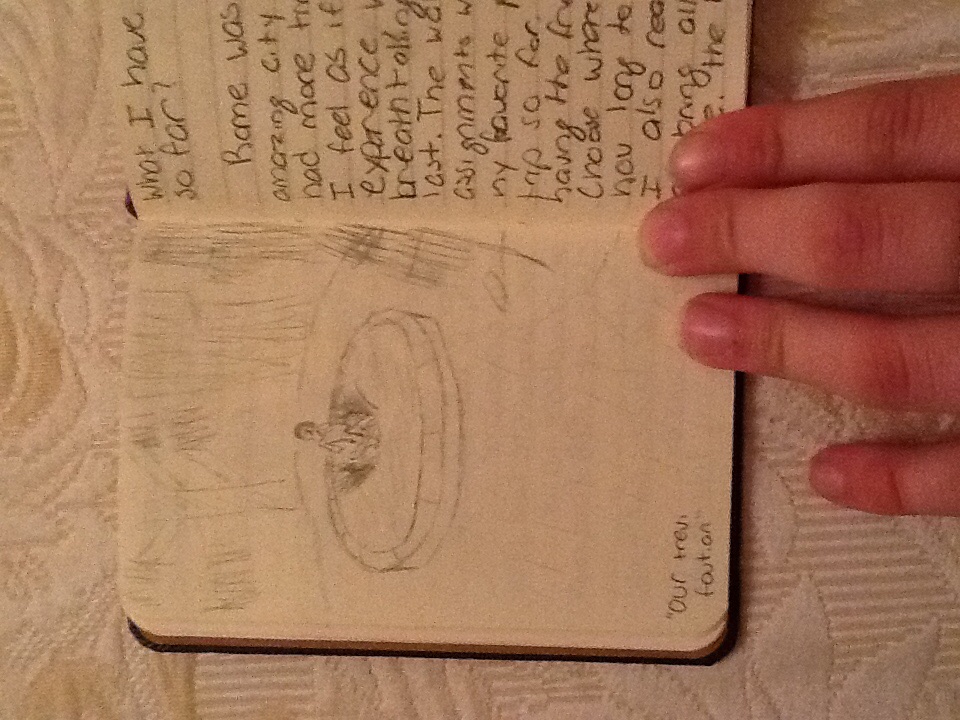 what I have
so far?
Rome was
amazing city
had more
I feel as if
experience
breathtaking
last. The
assignments
my favorite
trip so far.
having the
choose where
how long to
I also
bring
the
"our trevi
foutian"